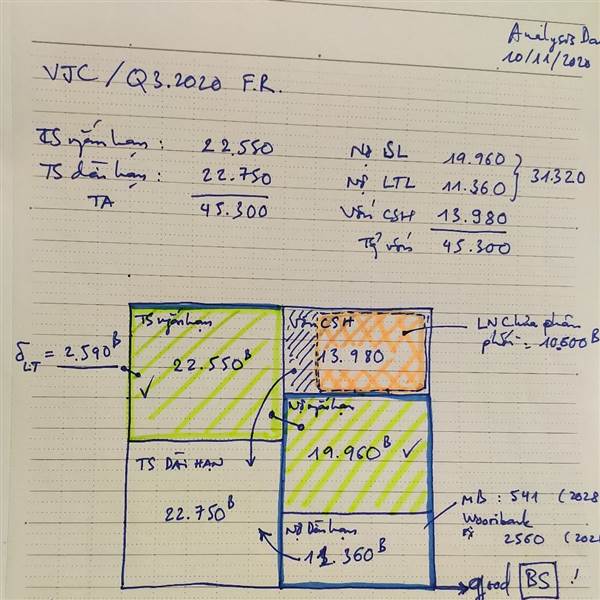 Analysis Da
10/11/2020
VJC / Q3.2020 F.R.
TS ngắn hạn : 22.550
TS dài hạn : 22.750
TA 45.300
Nợ SL 19.960
Nợ LTL 11.360
31.320
Vốn CSH 13.980
Tg vốn 45.300
TS ngắn hạn
22.550 B
δ LT = 2.590 B
✓
Vốn CSH
13.980
LN Chưa phân
phối = 10.600 B
Nợ ngắn hạn
19.960 B ✓
TS DÀI HẠN
22.750 B
Nợ Dài hạn
11.360 B
MB : 541 (2028
Wooribank
2560 (202
good BS !